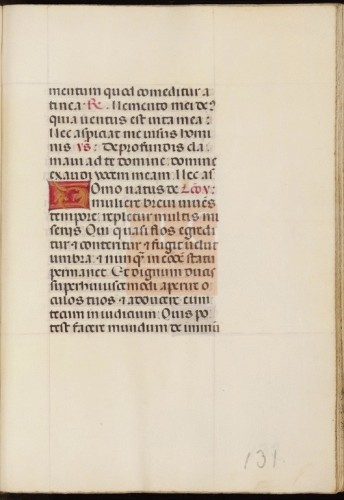 mentum quod comeditur a
tinea R. Memento mei de9
quia uentus est uita mea:
Nec aspiciat me uisus homi
nis Vs: De profundis cla
maui ad te domine domine
exaudi uocem meam Nec as
Homo natus de Leo V:
muliere breui uiuens
tempore repletur multis mi
seriis Qui quasi flos egredi
tur & conteritur & fugit uelut
umbra: & nunqm in eode statu
permanet Et dignum ducis
super huiuscemodi aperire o
culos tuos & adducere eum
tecum in iudicium Quis po
test facere mundum de inmu
131.